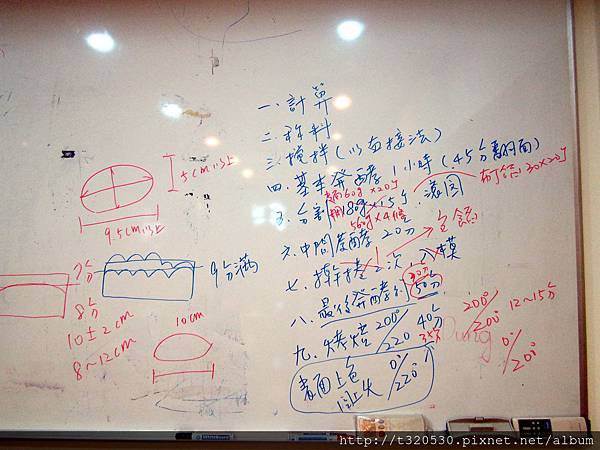 一、計算
二、秤料
三、攪拌(以直接法)
四、基本發酵 1小時(45分翻面)
甜60g×20个
布丁餡 30×20个
五、分割 180g×15个.滾圓
560g×4條
六、中間發酵 20分
包餡
七、擀捲2次,入模
30分
八、最後發酵約50分
九、烤焙 200°/220 40分
200°/200° 12~15分
0°/200°
表面上色
1詌火 0°/220°
5cm以上
9.5cm以上
7分
8分
10±2cm
8~12cm
9分滿
10cm
http://t320530.pixnet.net/album